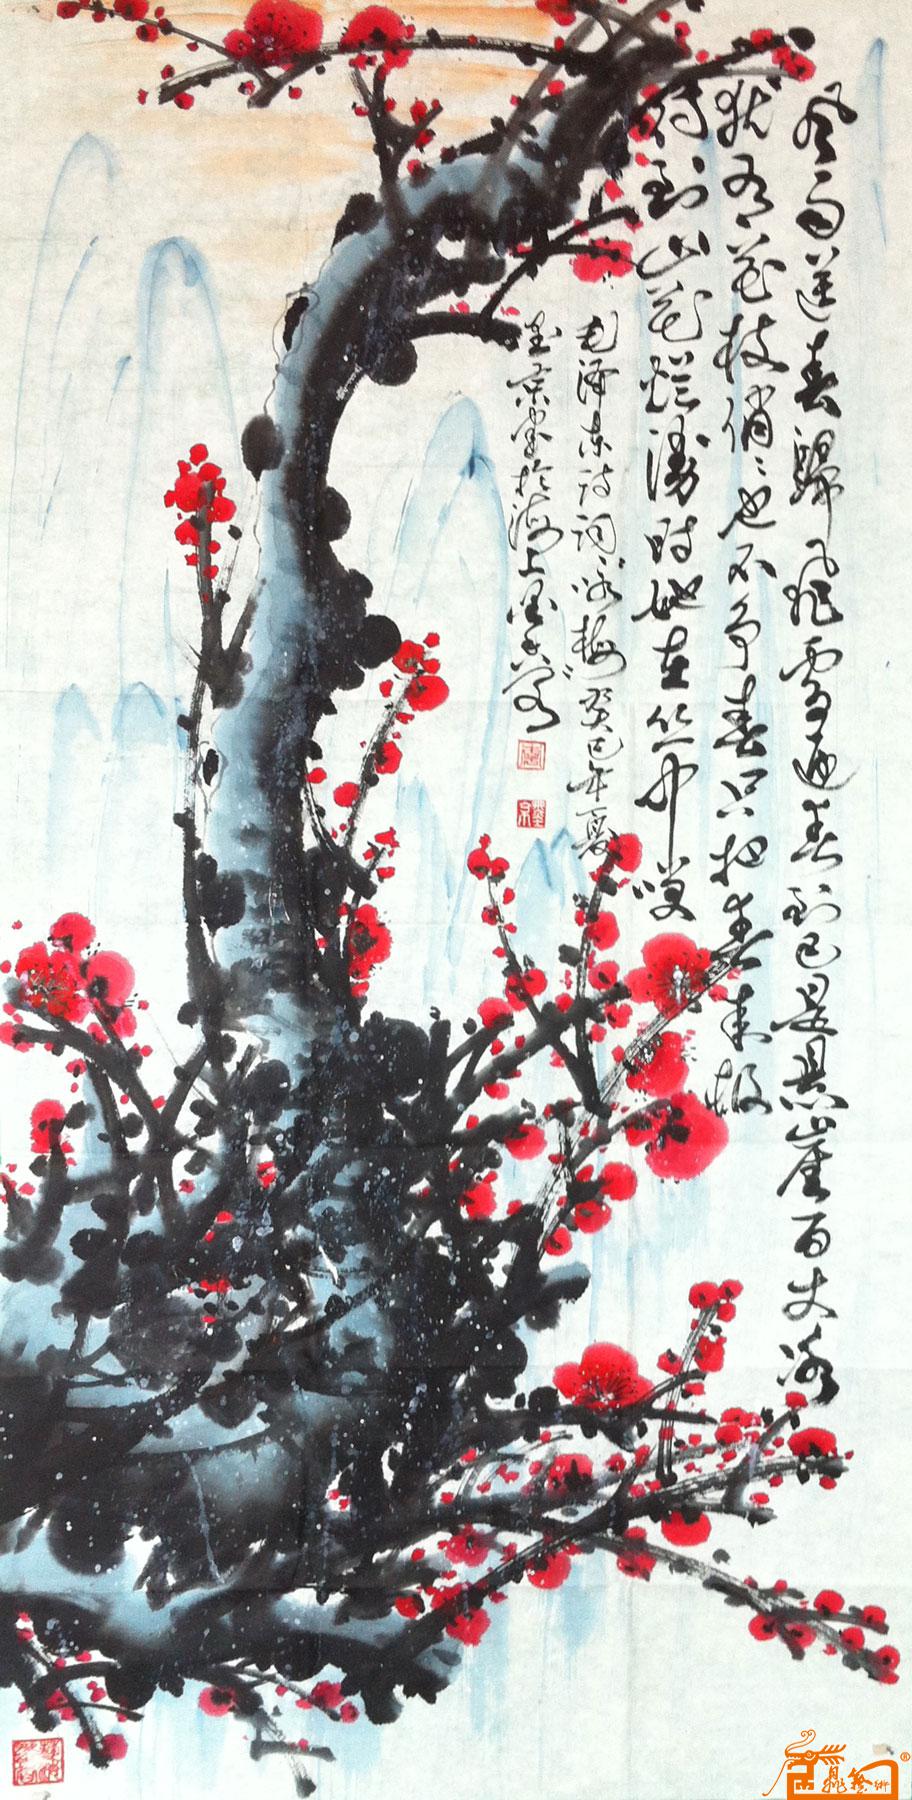 风雨送春歸飛雪迎春到已是悬崖百丈冰
犹有花枝俏〻也不争春只把春来报
待到山花烂漫时她在丛中笑
毛泽东诗词〝咏梅〞癸巳年夏
於海上墨
藝術
®